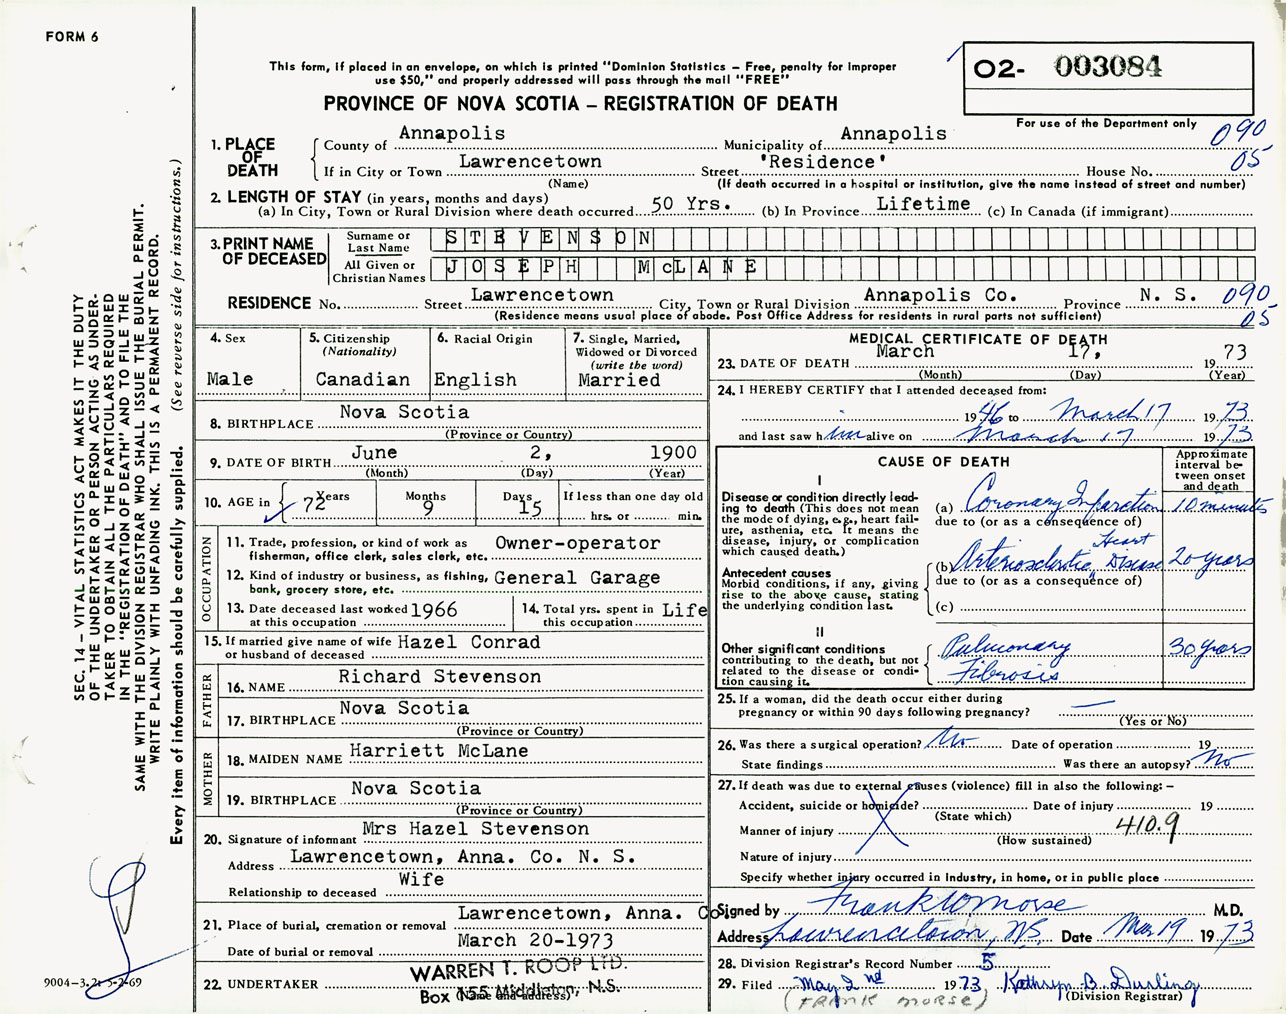 FORM 6
This form, if placed in an envelope, on which is printed "Dominion Statistics – Free, penalty for improper
use $50," and properly addressed will pass through the mail "FREE"
PROVINCE OF NOVA SCOTIA – REGISTRATION OF DEATH
O2- 003084
For use of the Department only
090
05
1. PLACE OF DEATH
County of Annapolis Municipality of Annapolis
If in City or Town Lawrencetown Street 'Residence' House No.
(Name) (If death occurred in a hospital or institution, give the name instead of street and number)
2. LENGTH OF STAY (in years, months and days)
(a) In City, Town or Rural Division where death occurred 50 Yrs. (b) In Province Lifetime (c) In Canada (if immigrant)
3. PRINT NAME OF DECEASED
Surname or Last Name STEVENSON
All Given or Christian Names JOSEPH McLANE
RESIDENCE No. Street Lawrencetown City, Town or Rural Division Annapolis Co. Province N. S. 090
(Residence means usual place of abode. Post Office Address for residents in rural parts not sufficient) 05
4. Sex
Male
5. Citizenship
(Nationality)
Canadian
6. Racial Origin
English
7. Single, Married,
Widowed or Divorced
(write the word)
Married
8. BIRTHPLACE Nova Scotia
(Province or Country)
9. DATE OF BIRTH June 2, 1900
(Month) (Day) (Year)
10. AGE in Years 72 Months 9 Days 15 If less than one day old
hrs. or min.
OCCUPATION
11. Trade, profession, or kind of work as
fisherman, office clerk, sales clerk, etc. Owner-operator
12. Kind of industry or business, as fishing,
bank, grocery store, etc. General Garage
13. Date deceased last worked
at this occupation 1966
14. Total yrs. spent in
this occupation. Life
15. If married give name of wife
or husband of deceased Hazel Conrad
FATHER
16. NAME Richard Stevenson
17. BIRTHPLACE Nova Scotia
(Province or Country)
MOTHER
18. MAIDEN NAME Harriett McLane
19. BIRTHPLACE Nova Scotia
(Province or Country)
20. Signature of informant Mrs Hazel Stevenson
Address Lawrencetown, Anna. Co. N. S.
Relationship to deceased Wife
21. Place of burial, cremation or removal Lawrencetown, Anna. Co.
Date of burial or removal March 20-1973
22. UNDERTAKER WARREN T. ROOP LTD.
(Name and address)
Box 155 Middleton, N.S.
MEDICAL CERTIFICATE OF DEATH
23. DATE OF DEATH March 17, 1973
(Month) (Day) (Year)
24. I HEREBY CERTIFY that I attended deceased from:
in 1946 to March 17 1973
and last saw him alive on March 17 1973
CAUSE OF DEATH
Approximate
interval be-
tween onset
and death
I
Disease or condition directly lead-
ing to death (This does not
mean the mode of dying, e.g., heart fail-
ure, asthenia, etc. It means the
disease, injury, or complication
which caused death.)
(a) Coronary Infarction 10 minutes
due to (or as a consequence of)
Antecedent causes
Morbid conditions, if any, giving
rise to the above cause, stating
the underlying condition last.
(b) Arteriosclerotic Heart Disease 20 years
due to (or as a consequence of)
(c)
II
Other significant conditions
contributing to the death, but not
related to the disease or condi-
tion causing it.
Pulmonary 30 years
Fibrosis
25. If a woman, did the death occur either during
pregnancy or within 90 days following pregnancy? —
(Yes or No)
26. Was there a surgical operation? No Date of operation 19
State findings Was there an autopsy? No
27. If death was due to external causes (violence) fill in also the following: –
Accident, suicide or homicide? Date of injury 19
(State which)
Manner of injury 410.9
(How sustained)
Nature of injury
Specify whether injury occurred in industry, in home, or in public place
Signed by Frank W Morse M.D.
Address Lawrencetown, N.S. Date Mar 19 1973
28. Division Registrar's Record Number 5
29. Filed May 2nd 1973 Kathryn B. Durling
(FRANK MORSE) (Division Registrar)
SEC. 14 – VITAL STATISTICS ACT MAKES IT THE DUTY
OF THE UNDERTAKER OR PERSON ACTING AS UNDER-
TAKER TO OBTAIN ALL THE PARTICULARS REQUIRED
IN THE "REGISTRATION OF DEATH" AND TO FILE THE
SAME WITH THE DIVISION REGISTRAR WHO SHALL ISSUE THE BURIAL PERMIT.
WRITE PLAINLY WITH UNFADING INK. THIS IS A PERMANENT RECORD.
Every item of information should be carefully supplied. (See reverse side for instructions.)
9004-3.2: 5-2-69